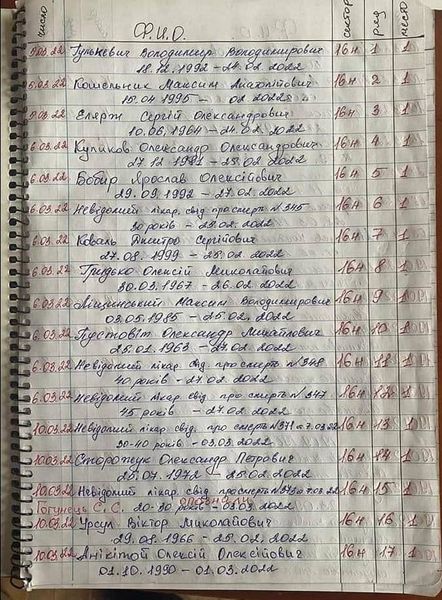 число Ф.И.О. сектор ряд место
5.03.22 Гулькевич Володимир Володимирович 16н 1 1
18.12.1992 - 24.02.2022
5.03.22 Кошельник Максим Анатолійович 16н 2 1
15.04.1995 - 02.2022
Сергій Олександрович 16н 3 1
10.06.1964 - 24.02.2022
6.03.22 Куликов Олександр Олександрович 16н 4 1
27.12.1981 - 25.02.2022
6.03.22 Бобир Ярослав Олексійович 16н 5 1
29.09.1992 - 27.02.2022
6.03.22 Невідомий лікар. свід. про смерть N 345 16н 6 1
30 років - 25.02.2022
6.03.22 Коваль Дмитро Сергійович 16н 7 1
27.08.1999 - 25.02.2022
6.03.22 Гридько Олексій Миколайович 16н 8 1
30.03.1967 - 26.02.2022
6.03.22 Максим Володимирович 16н 9 1
03.05.1985 - 25.02.2022
6.03.22 Пустовіт Олександр Михайлович 16н 10 1
25.01.1963 - 27.02.2022
6.03.22 Невідомий лікар. свід. про смерть N 348 16н 11 1
40 років - 27.02.2022
6.03.22 Невідомий лікар. свід. про смерть N 347 16н 12 1
45 років - 27.02.2022
10.03.22 Невідомий лікар. свід. про смерть N 371 16н 13 1
30-40 років - 03.03.2022
10.03.22 Сторожук Олександр Петрович 16н 14 1
25.07.1972 - 25.02.2022
10.03.22 Невідомий лікар. свід. про смерть 16н 15 1
опознали
С.С. 20-30 років - 03.03.2022
10.03.22 Урсул Віктор Миколайович 16н 16 1
29.08.1966 - 25.02.2022
10.03.22 Анікітой Олексій Олексійович 16н 17 1
01.10.1990 - 01.03.2022